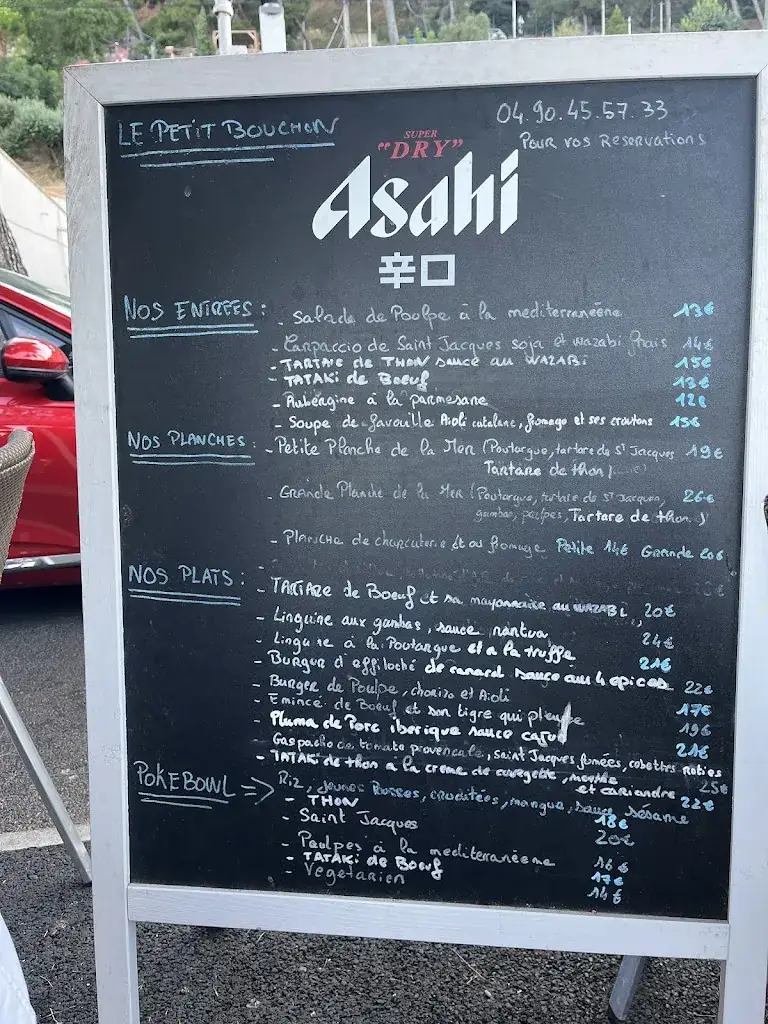 LE PETIT BOUCHON
04.90.45.57.33
Pour vos Reservations
SUPER
"DRY"
Asahi
辛口
NOS ENTREES :
- Salade de Poulpe à la mediterraneéne 13€
- Carpaccio de Saint Jacques soja et wazabi frais 14€
- TARTARE de THON sauce au WAZABI 15€
- TATAKI de Boeuf 13€
- Aubergine à la parmesane 12€
- Soupe de favouille Aioli catalane, fromage et ses croutons 15€
NOS PLANCHES :
- Petite Planche de la Mer (Poutargue, tartare de St Jacques 19€
Tartare de thon)
- GRANDE Planche de la Mer (Poutargue, tartare de St Jacques, 26€
gambas, poulpes, Tartare de thon)
- PLANCHE de charcuterie et ou fromage Petite 14€ Grande 20€
NOS PLATS :
- TARTARE de Boeuf et sa mayonnaise au WAZABI, 20€
- Linguine aux gambas, sauce nantua 24€
- Linguine à la Poutargue et a la truffe 21€
- Burger d'effiloché de canard sauce aux 4 epices 22€
- Burger de Poulpe, chorizo et Aioli 17€
- Emincé de Boeuf et son tigre qui pleure 19€
- Pluma de Porc iberique sauce 21€
- Gaspacho de tomate provencale, saint Jacques fumées, roties 25€
- TATAKI de thon à la creme de courgette, menthe
et coriandre 22€
POKEBOWL => Riz, jeunes Pousses, cruditées, mangue, sauce sésame
- THON 18€
- Saint Jacques 20€
- Poulpes à la mediterraneéne 16€
- TATAKI de Boeuf 17€
- Vegetarien 14€